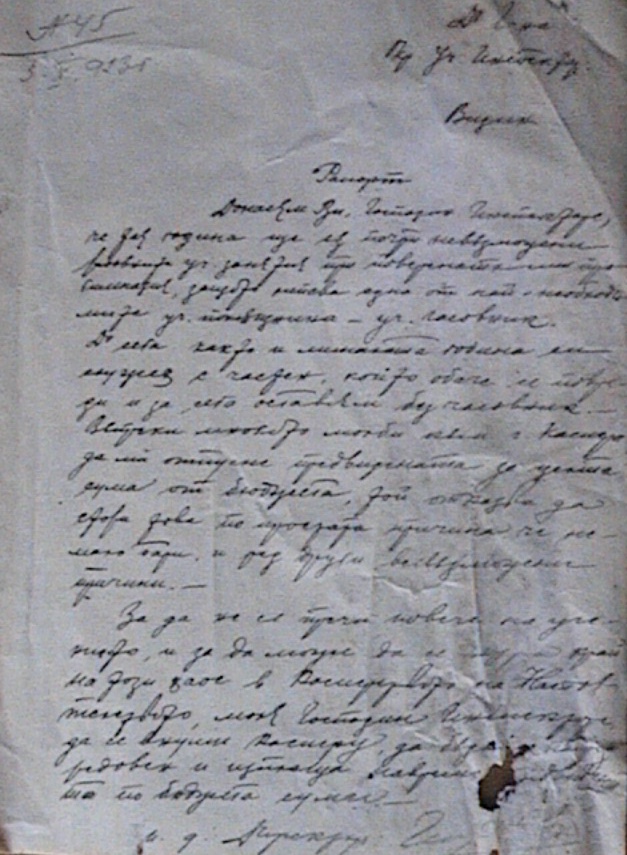 № 45
До Г-на
Уч. Инспектор
Видин
Рапорт
Донасям Ви, Господин Инспекторе,
че тая година ще са почти невъзможни
уч. занятия при поверената ми про-
гимназия, защото липсва едно от най-необходи-
мите уч. – уч. часовник.
До сега както и миналата година си
с частен, който обаче се повре-
ди и за сега оставям без часовник. –
Въпреки многото молби към г. Касиера
да ми отпусне предвидената за целта
сума от бюджета, той отказва да
стори това по простата причина че ня-
мало пари и ред други невъзможни
причини. –
За да не се пречи повече на уче-
нието, и за да може да се тури край
на този хаос в на Настоя-
телството, моля Господин Инспекторе
да се Касиера, да бъде
редовен и изплаща навреме
та по бюджета суми. –
и. д. Директор: